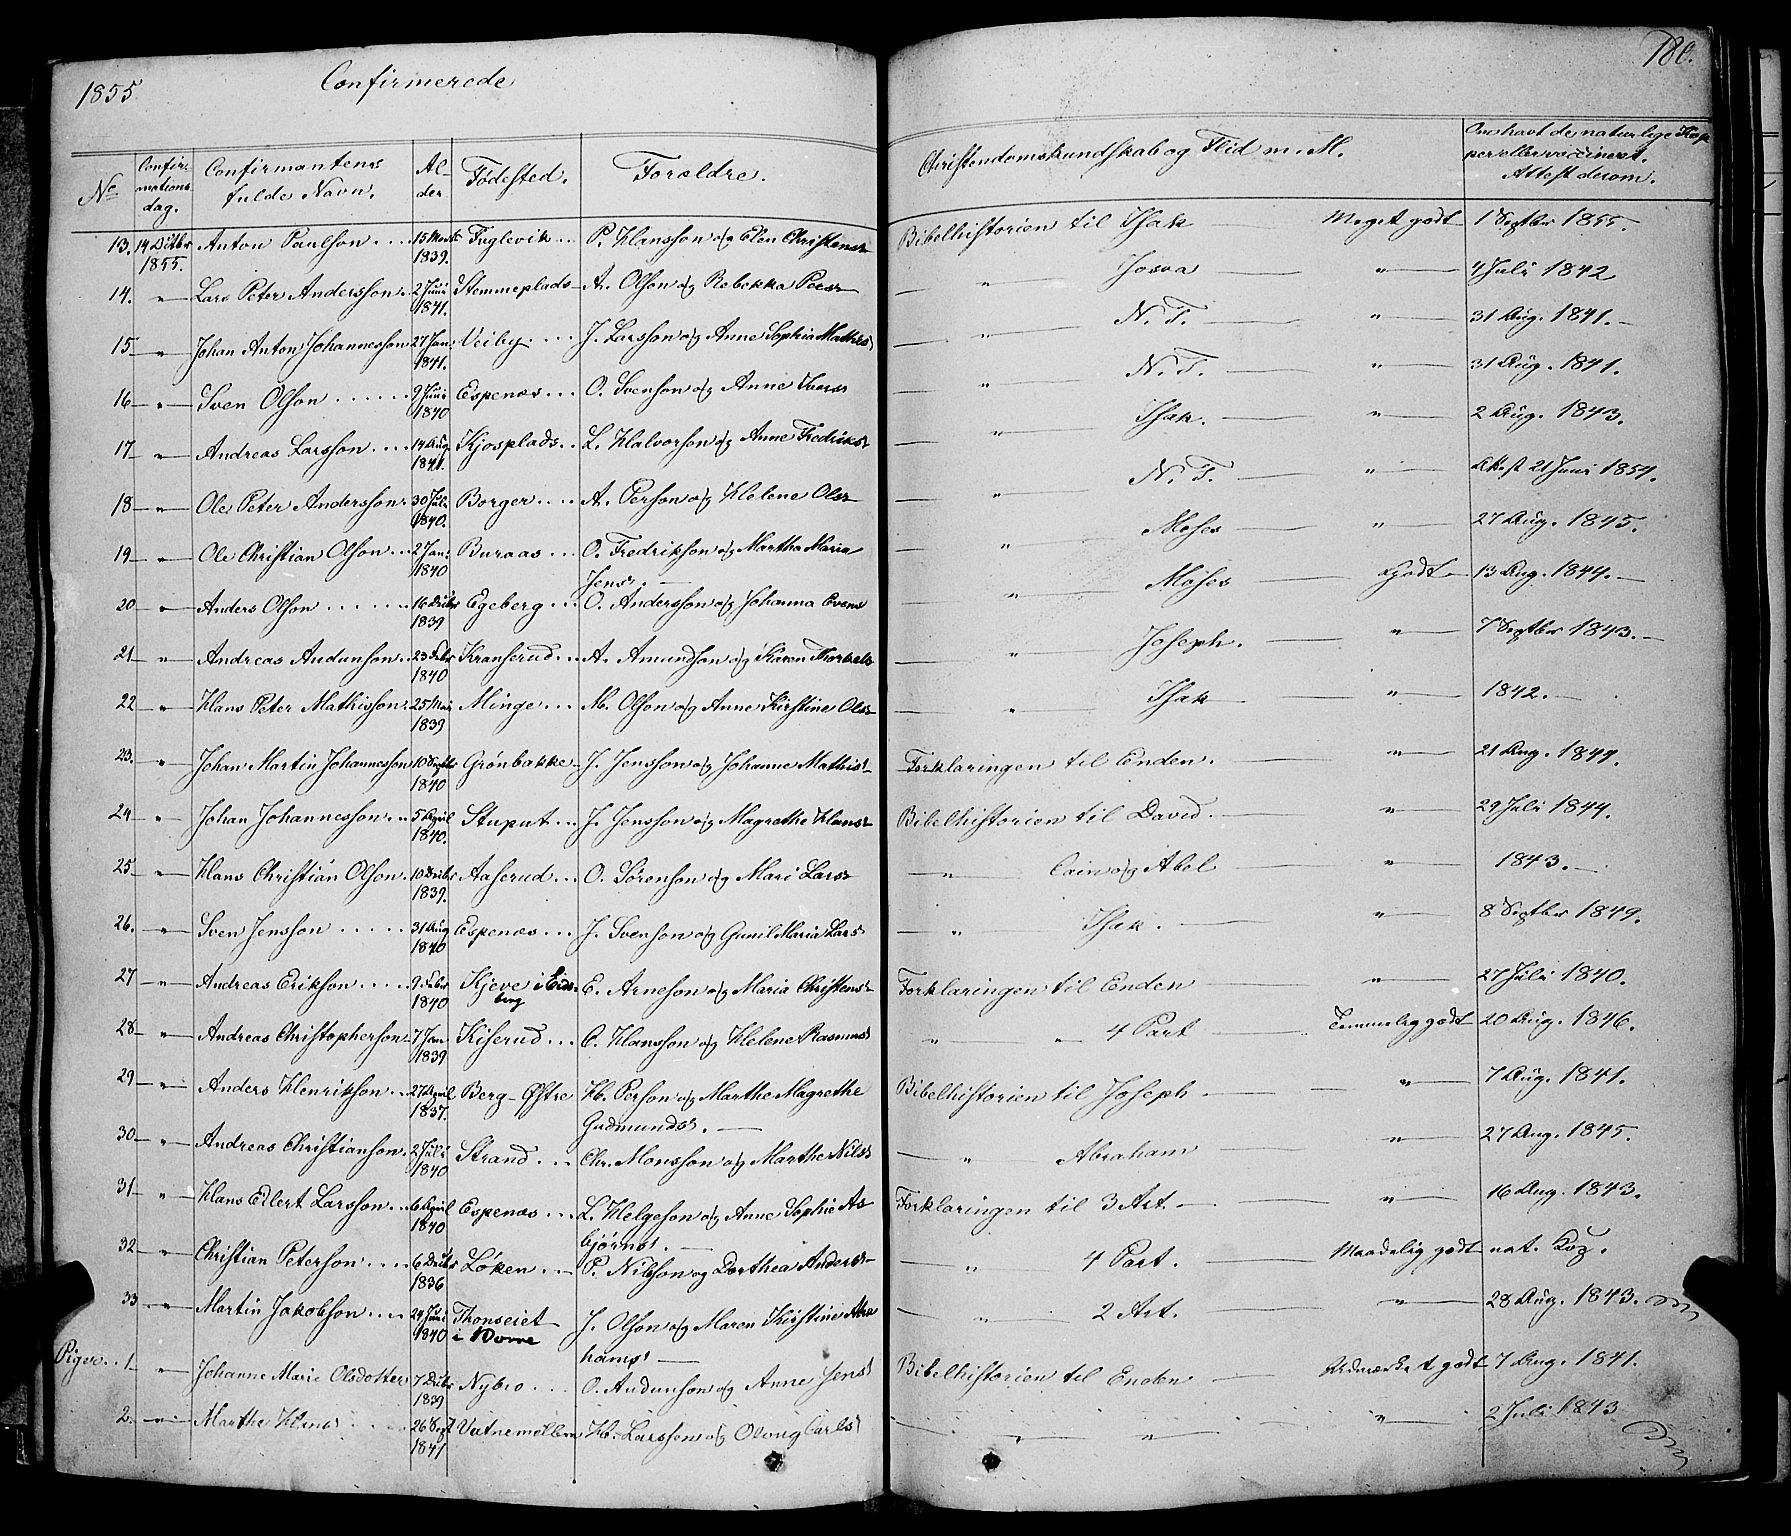 1855
Confirmerede
180.
No
Confirmationsdag.
Confirmantens fulde Navn.
Alder
Fødested.
Forældre.
Christendomskundskab og Flid m. M.
Om havt de naturlige Kopper eller vaccineret. Attest derom.
13. 14 Octbr 1855. Anton Paulson 15 Marts 1839. Fuglevik P. Hansson og Elen Christens Bibelhistorien til Isak Meget godt 1 Septbr 1855.
14. " Lars Peter Andersson 2 Juni 1841. Stemmeplads A. Olson og Rebekka Peers " Josva " 4 Juli 1842
15 " Johan Anton Johannesson 27 Jan. 1841. Veiby J. Larsson og Anne Sophia Mathis " N. T. " 31 Aug. 1841.
16 " Sven Olson 9 Juni 1840 Espenæs O. Svenson og Anne Ivers " N. T. " 31 Aug. 1841.
17 " Andreas Larsson 14 Aug. 1841. Kjosplads L. Halvorson og Anne Fredriks " Isak. " 2 Aug. 1843.
18 " Ole Peter Andersson 30 Juli 1840. Borger A. Person og Helene Ols " N. T. " Attest 21 Juni 1854.
19 " Ole Christian Olson 2 Jan. 1840 Buraas O. Fredrikson og Martha Maria Jens. " Moses " 27 Aug. 1845.
20 " Anders Olson 16 Decbr 1839 Egeberg O. Andersson og Johanna Evens " Moses Godt 13 Aug. 1844.
21 " Andreas Audunson 23 Febr 1840 Kranserud A. Amundson og Karen Thorkels " Joseph. " 7 Septbr 1843.
22 " Hans Peter Mathisson 25 Mai 1839 Minge M. Olson og Anne Kirstine Ols " Isak " 1842.
23. " Johan Martin Johannesson 10 Septbr 1840 Grönbakke J. Jensson og Johanne Mathis Forklaringen til Enden. " 21 Aug. 1844.
24 " Johan Johannesson 5 April 1840. Stuput J. Jensson og Magrethe Hans Bibelhistorien til David. " 29 Juli 1844.
25 " Hans Christian Olson 10 Decbr 1839. Aaserud O. Sörenson og Mari Lars " Cain og Abel " 1843.
26. " Sven Jensson 31 Aug 1840 Espenæs J. Svenson og Gunil Maria Lars " Isak. " 8 Septbr 1849.
27 " Andreas Erikson 9 Febr 1840 Kjeve i Eidsberg E. Arneson og Maria Christens Forklaringen til Enden " 27 Juli 1840.
28 " Andreas Christopherson 7 Jan 1839 Kiserud C. Hansson og Helene Rasmus " " 4 Part Temmelig godt 20 Aug. 1846.
29 " Anders Henrikson 27 April 1837. Berg-Østre H. Person og Marthe Magrethe Gudmunds. Bibelhistorien til Joseph " 7 Aug. 1841.
30 " Andreas Christianson 2 Juli 1840 Strand Chr. Monsson og Marthe Nils " Abraham " 27 Aug. 1845.
31 " Hans Edlert Larsson 6 April 1840 Espenæs L. Helgeson og Anne Sophie Asbjörns. Forklaringen til 3 Art. " 16 Aug. 1843.
32 " Christian Peterson 6 Decbr 1836 Løken P. Nilsson og Dorthea Anders " 4 Part. Maadelig godt nat. Kop.
33 " Martin Jakobson 24 Juni 1840 Thonseiet i Borre J. Olson og Maren Kirstine Abrahams " 2 Art. " 28 Aug. 1843.
Piger. 1 " Johanne Marie Olsdotter 7 Decbr 1839 Nybro O. Audunson og Anne Jens Bibelhistorien til Enden Udmærket godt 7 Aug. 1841.
2. " Marthe Hans 26 Sept 1841 Vatnemöllen H. Larsson og Oloug Carls " " " 2 Juli 1843